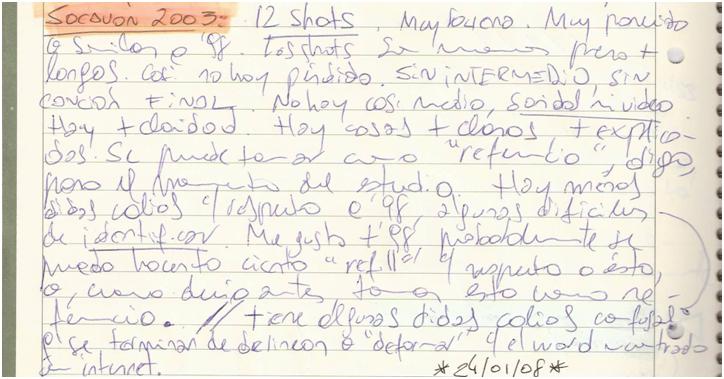 SOCAVÓN 2003: 12 shots. Muy bueno. Muy parecido
o similar a '98. Los shots se menos pero +
largos. Casi no hay pérdida. SIN INTERMEDIO, SIN
CANCIÓN FINAL. No hay casi medio, ni video
Hay + claridad. Hay cosas + claras, + explica-
das. Se puede tomar como "referencia", digo,
para el momento del estudio. Hay menos
c/ respecto a '98, algunas difíciles
de identificar. Me gusta + '98, probablemente se
pueda hacer cierto "refill" c/ respecto a ésto,
o, como decía antes tomar esto como re-
ferencia. // tiene algunas confusas
se terminan de delinear o "deformar" c/ el word encontrado
en internet. *24/01/08*